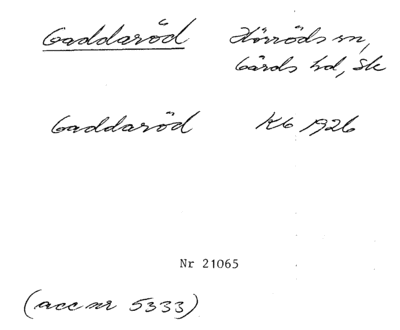 Gaddaröd Hörröds sn,
Gärds hd, Sk
Gaddaröd Kb 1926
Nr 21065
(acc nr 5333)